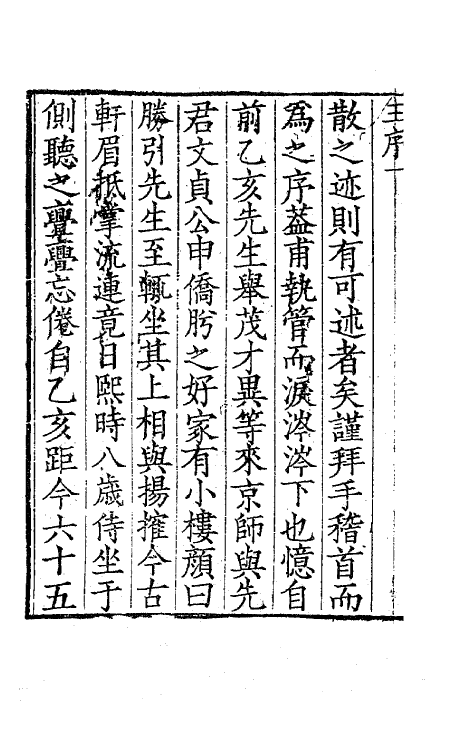 王序一
散之迹則有可述者矣謹拜手稽首而
為之序葢甫執管而淚涔涔下也憶自
前乙亥先生舉茂才異等來京師與先
君文貞公申僑肸之好家有小樓顏曰
勝引先生至輒坐其上相與揚搉今古
軒眉抵掌流連竟日熙時八歲侍坐于
側聽之亹亹忘倦自乙亥距今六十五